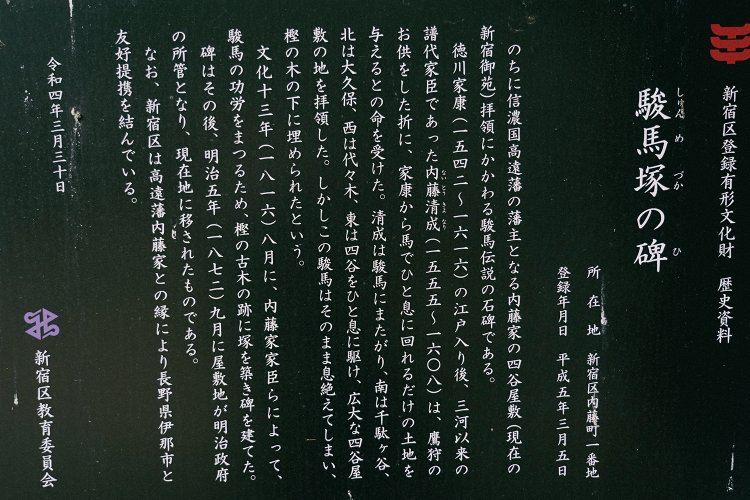 新宿区登録有形文化財　歴史資料
駿馬塚の碑
しゅんめづか　ひ
所在地　新宿区内藤町一番地
登録年月日　平成五年三月五日
のちに信濃国高遠藩の藩主となる内藤家の四谷屋敷（現在の
新宿御苑）拝領にかかわる駿馬伝説の石碑である。
徳川家康（一五四二～一六一六）の江戸入り後、三河以来の
譜代家臣であった内藤清成（一五五五～一六〇八）は、鷹狩の
お供をした折に、家康から馬でひと息に回れるだけの土地を
与えるとの命を受けた。清成は駿馬にまたがり、南は千駄ヶ谷、
北は大久保、西は代々木、東は四谷をひと息に駆け、広大な四谷屋
敷の地を拝領した。しかしこの駿馬はそのまま息絶えてしまい、
樫の木の下に埋められたという。
文化十三年（一八一六）八月に、内藤家家臣らによって、
駿馬の功労をまつるため、樫の古木の跡に塚を築き碑を建てた。
碑はその後、明治五年（一八七二）九月に屋敷地が明治政府
の所管となり、現在地に移されたものである。
なお、新宿区は高遠藩内藤家との縁により長野県伊那市と
友好提携を結んでいる。
令和四年三月三十日
新宿区教育委員会